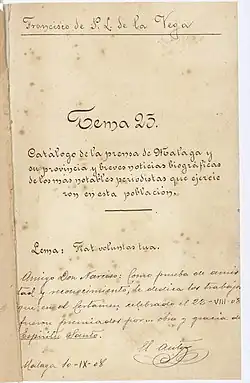 Francisco de P. L. de la Vega
Tema 25.
Catálogo de la prensa de Málaga y
su provincia y breves noticias biográficas
de los mas notables periodistas que ejercie
ron en esta población.
Lema: Fiat voluntas tua.
Amigo Don Narciso: Como prueba de amis
tad y reconocimiento, le dedica los trabajos
que, en el Certamen celebrado el 22-VIII-08
fueron premiados por obra y gracia del
Espíritu Santo.
El Autor
Málaga 10-IX-08